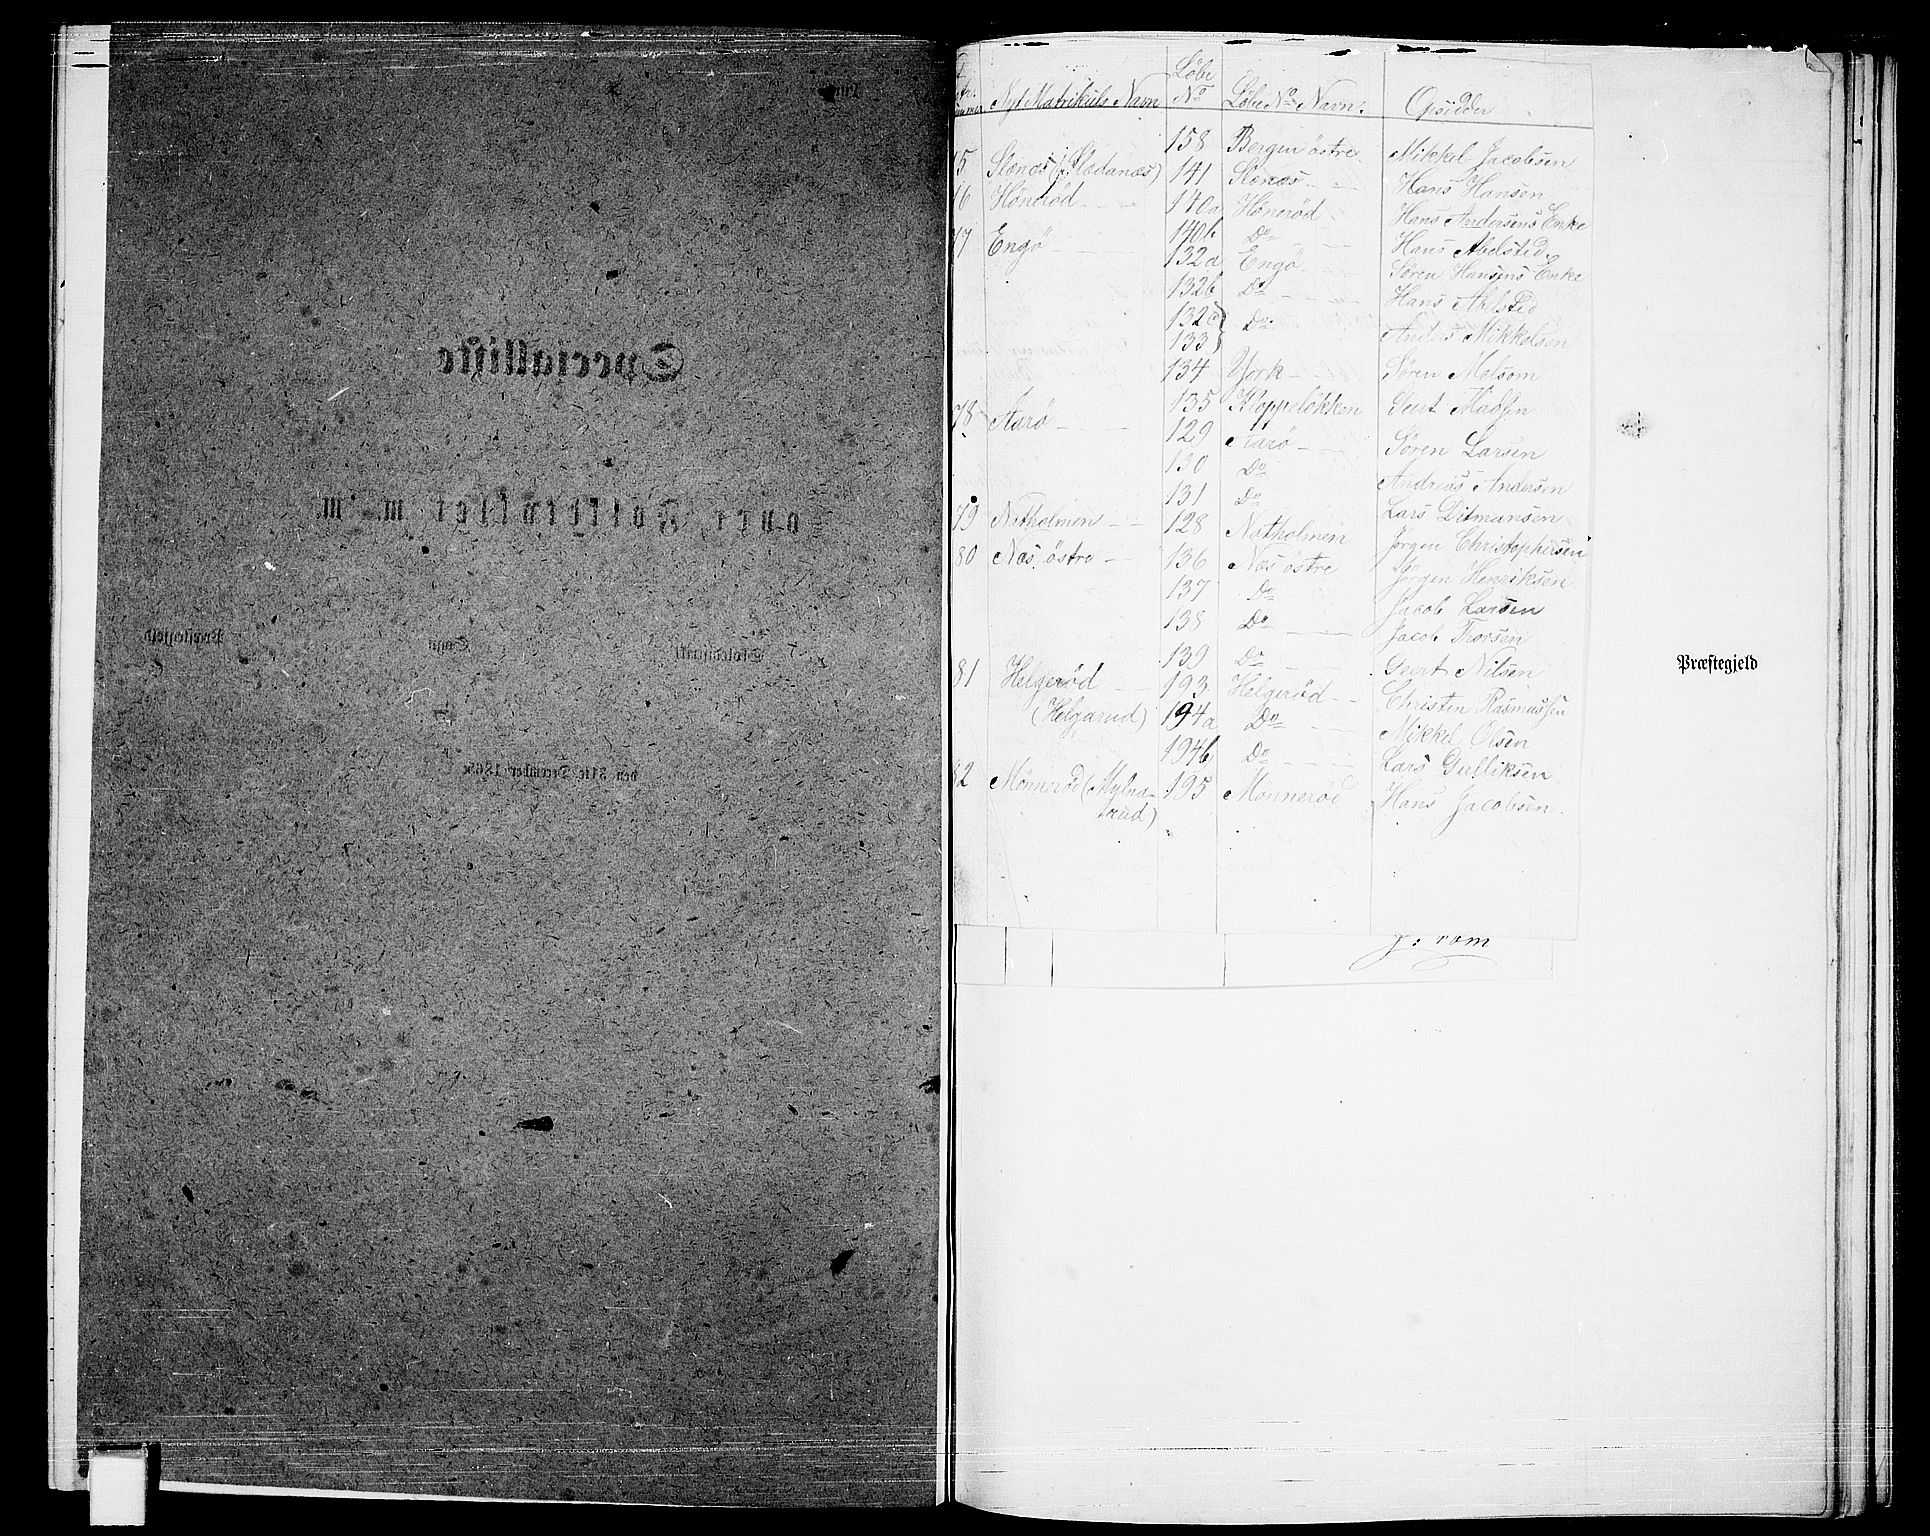 Specialliste
over Folketallet m. m.
Præstegjeld
Sogn
den 31te December 1865
Nyt Matrikuls Navn Löbe No Löbe No Navn. Opsidder
158 Bergan östre Mikkel Jacobsen
75 Slenæs (Slædanæs) 141 Slenæs Hans Hansen
76 Hönerød 140a Hönerød Hans Andersens Enke
140b Do Hans Abelsted
77 Engö 132a Engö Søren Hansens Enke
132b Do Hans Abelsted
132c } Do Anders Mikkelsen
133 }
134 York Søren Melsom
135 Kloppeløkken Geert Madsen
78 Aarö 129 Aarö Søren Larsen
130 Do Andreas Andersen
131 Do Lars Ditmansen
79 Natholmen 128 Natholmen Jørgen Christophersen
80 Næs östre 136 Næs östre Jørgen Henriksen
137 Do Jacob Larsen
138 Do Jacob Thorsen
139 Do Geert Nilsen
81 Helgerød 193 Helgerød Christen Rasmussen
(Helgarud) 194a Do Mikkel Olsen
194b Do Lars Gulliksen
82 Mönnerød (Mylna- 195 Mönnerød Hans Jacobsen.
rud)
Præstegjeld